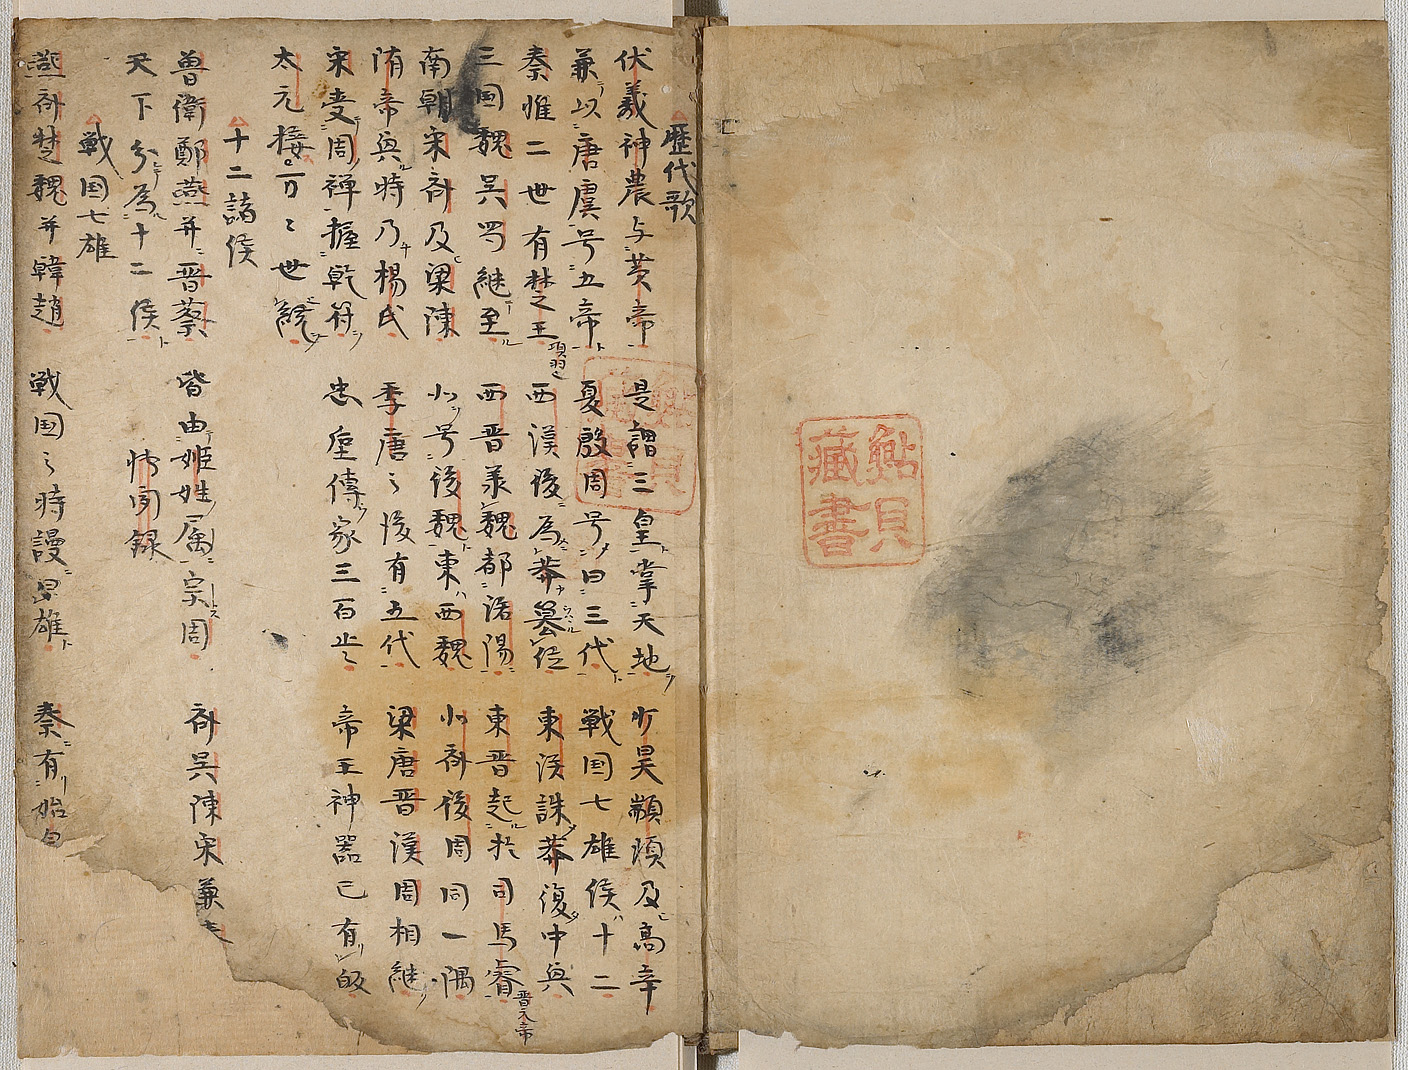 鮎貝
藏書
歷代歌
伏羲神農与黃帝 是謂三皇掌天地 少昊顓頊及高辛
兼以唐虞号五帝 夏殷周号曰三代 戦国七雄侯十二
秦惟二世有楚王 項羽也 西漢後為莽篡位 東漢誅莽復中興
三国魏吴蜀継至 西晋承魏都洛陽 東晋起於司馬睿 晋元帝
南朝宋斉及梁陳 北号後魏東西魏 北斉後周同一隅
隋帝興時乃楊氏 季唐之後有五代 梁唐晋漢周相継
宋受周禅握乾符 忠座傳家三百 帝王神器已有
太元 万々世
十二諸侯
魯衛鄭燕并晋蔡 皆由姬姓属宗周 斉吴陳宋兼
天下分為十二侯
戦国七雄
燕斉楚魏并韓趙 戦国之時謾 雄 秦有始皇